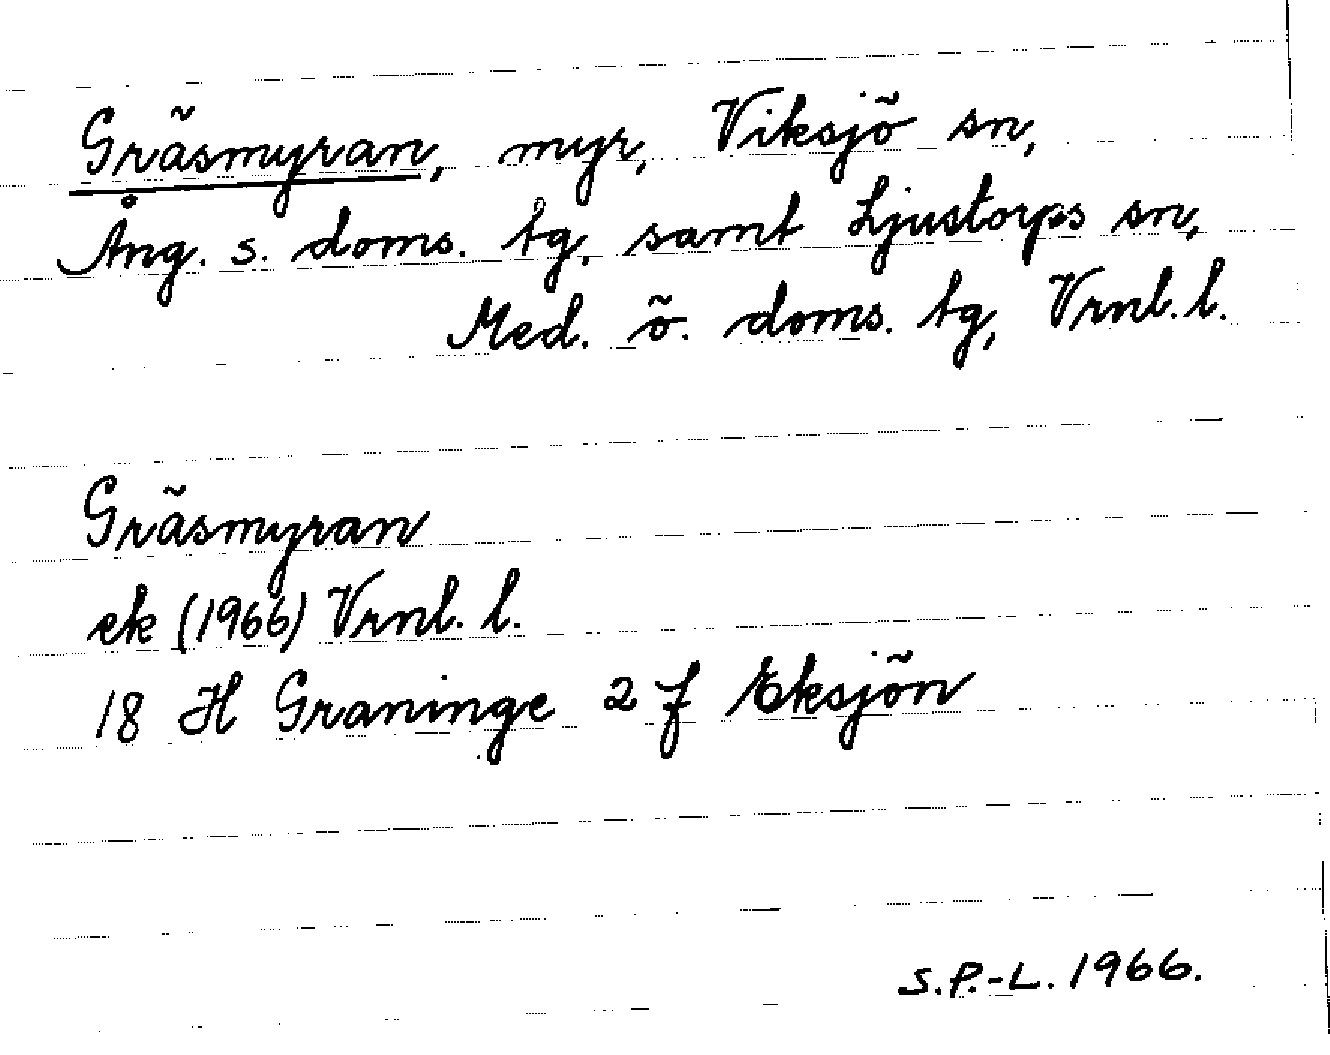 Gräsmyran, myr, Viksjö sn,
Ång. s. doms. tg. samt Ljustorps sn,
Med. ö. doms. tg, Vrnl. l.
Gräsmyran
ek (1966) Vrnl. l.
18 H Graninge 2 f Eksjön
S.P.-L. 1966.